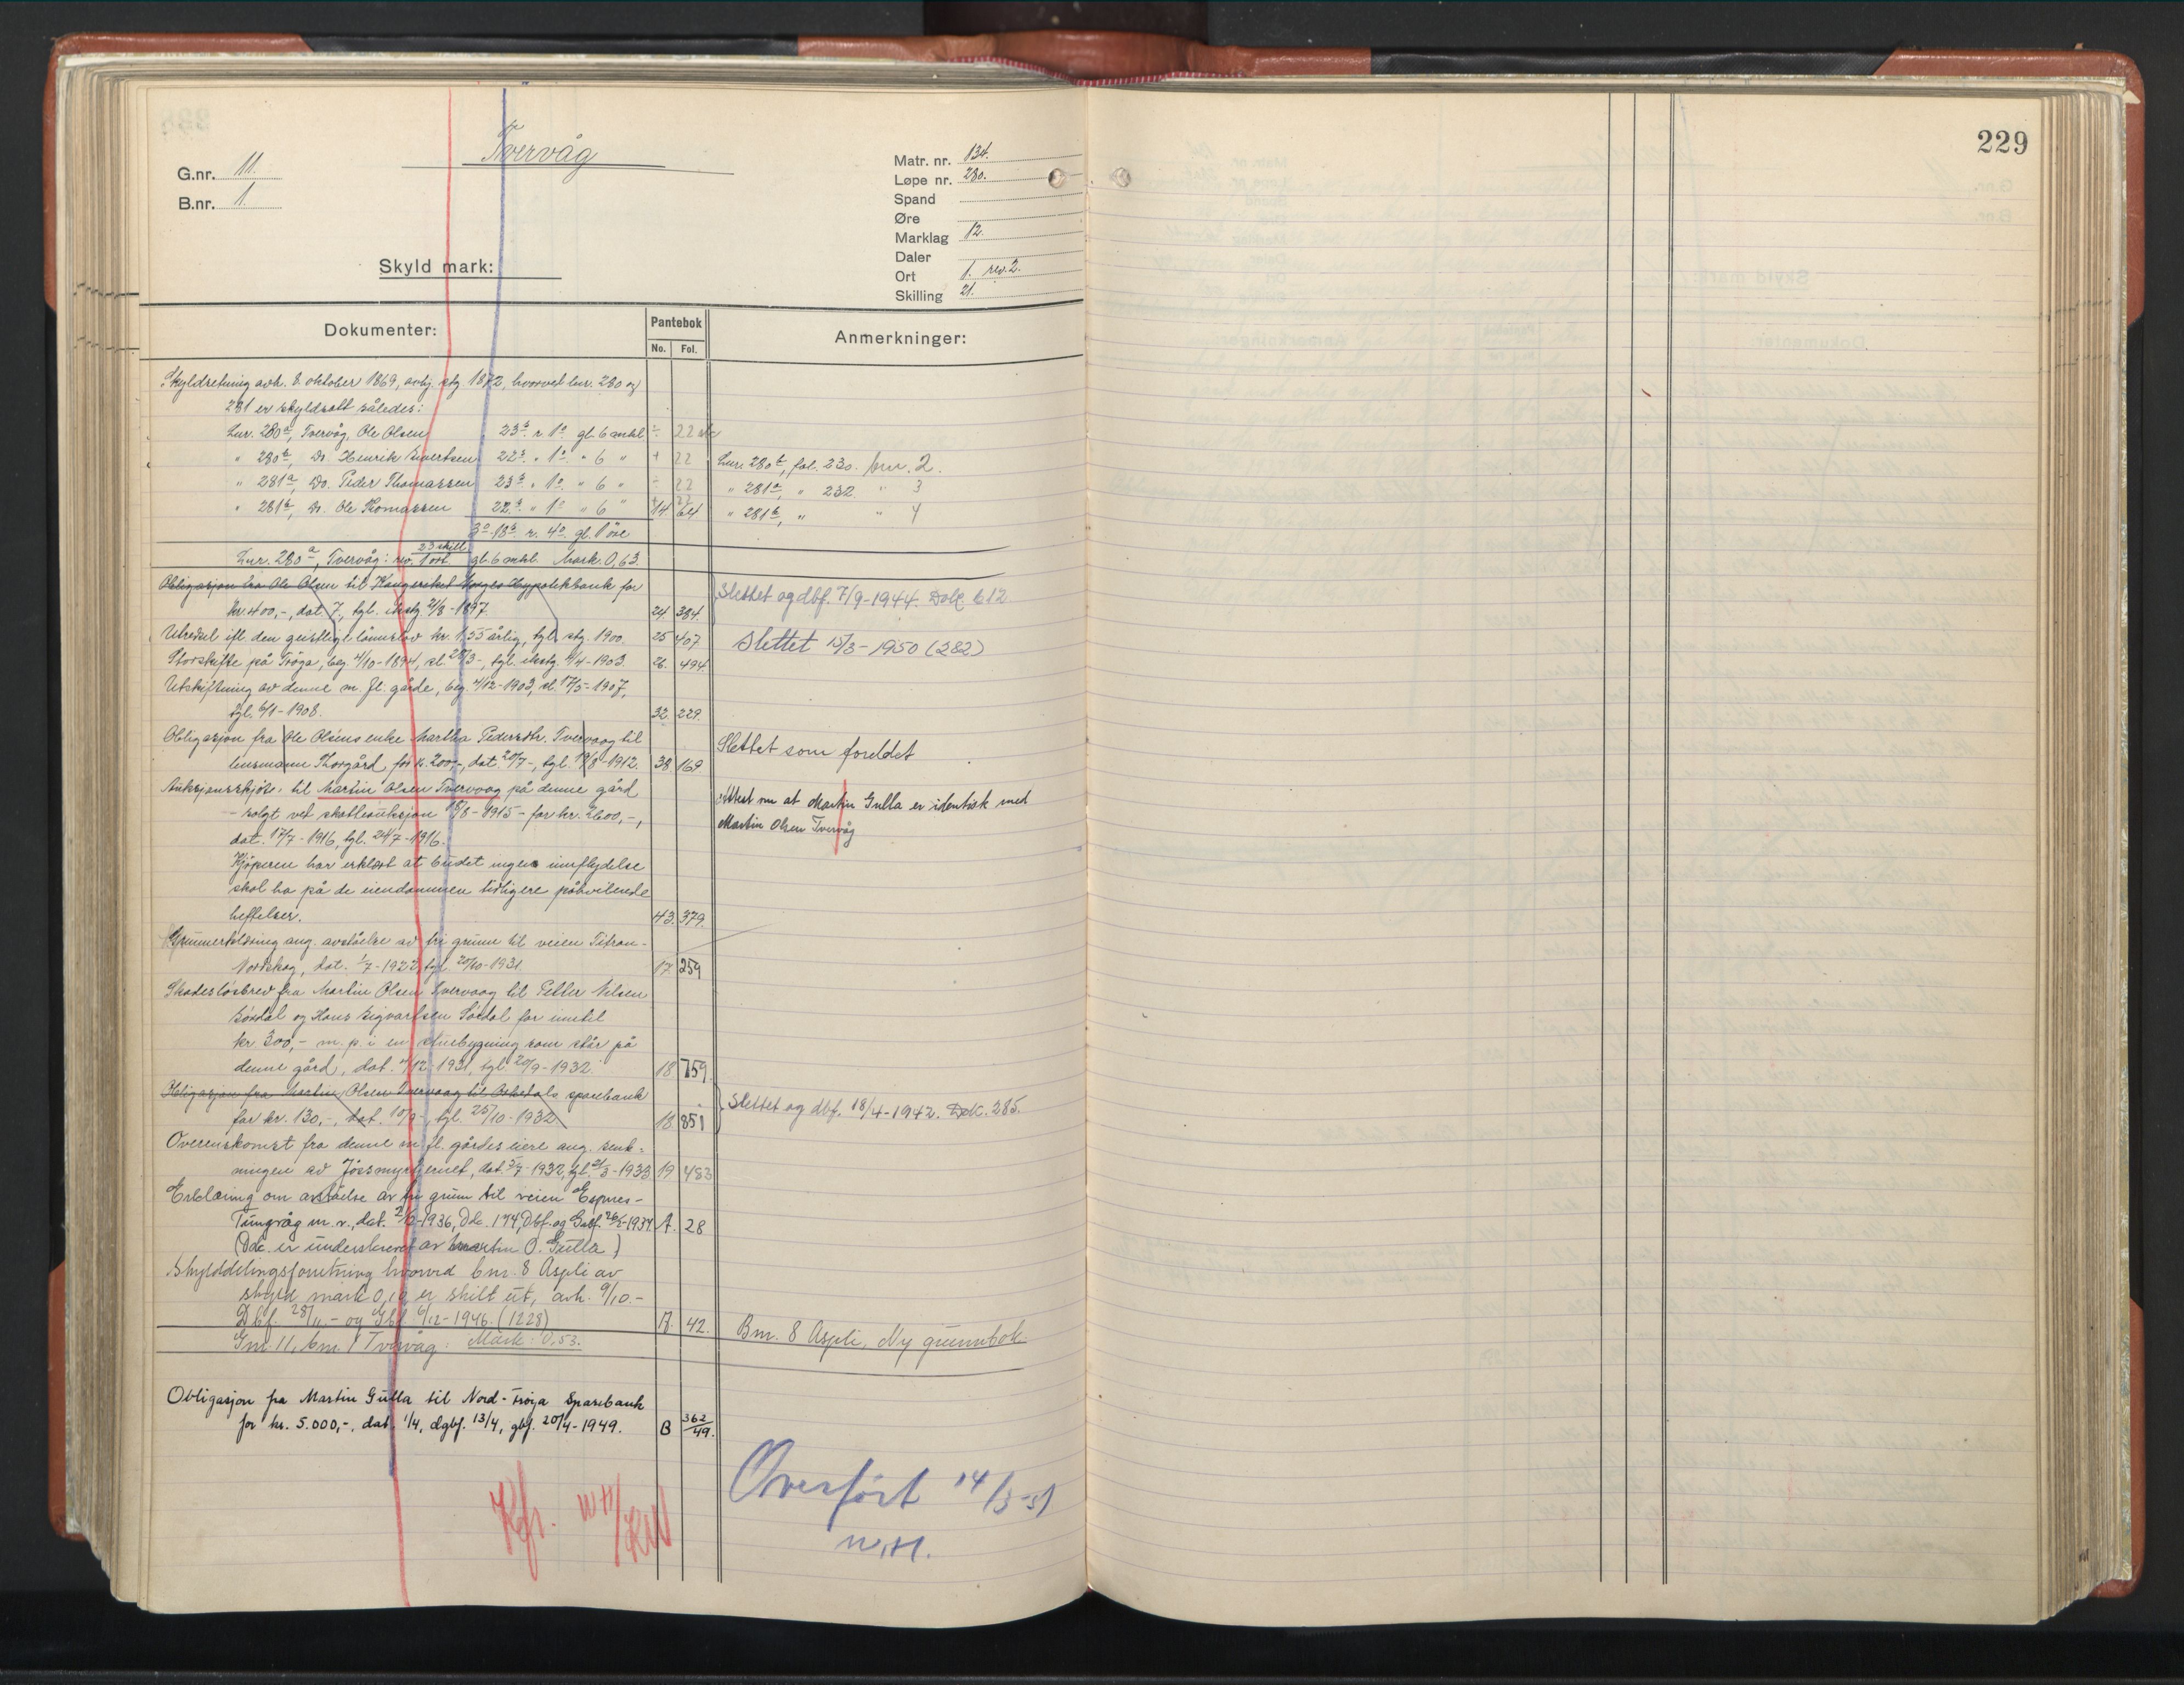 229
Tvervåg
G.nr. 11.
B.nr. 1.
Matr. nr. 134.
Løpe nr. 280.
Spand
Øre
Marklag 12.
Daler
Ort 1. rev. 2.
Skilling 21.
Skyld mark:
Dokumenter:
Pantebok
No. Fol.
Anmerkninger:
Skyldsetning avh. 8. oktober 1869, avhj. stg 1872, hvorved lnr. 280 og
281 er skyldsatt således:
Lnr. 280a, Tvervåg, Ole Olsen 23s. r. 1o. gl. 6 mkl ÷ 22
" 280b, Do. Henrik Sivertsen 22s. " 1o. " 6 " + 22 Lnr 280b, fol. 230. bnr. 2.
" 281a, Do. Peder Thomassen 23s. " 1o. " 6 " ÷ 22 " 281a, " 232 " 3
" 281b, Do. Ole Thomassen 22s. " 1o " 6 " 14 64 " 281b, " " 4
3o 18s. r. 4o. gl. 1 öre
Lnr. 280a, Tvervåg: rev. 1 ort 23 skill. gl. 6 mkl. Mark. 0,63.
Obligasjon fra Ole Olsen til Kongeriket Norges Hypotekbank for
kr. 400,-, dat. 7., tgl. ekstg 21/8-1897. 24. 384.
Slettet og dbf. 7/9-1944. Dok. 612
Utredsel ifl. den geistlige lønnslov kr. 1,55 årlig, tgl. stg. 1900. 25 407
Slettet 15/3-1950 (282)
Storskifte på Frøya, beg. 4/10-1894, sl. 28/3-, tgl. ekstg. 4/4-1903. 26. 494
Utskiftning av denne m. fl. gårde, beg. 4/12-1903, sl. 17/5-1907,
tgl. 6/1-1908. 32. 229.
Obligasjon fra Ole Olsens enke Martha Pedersdtr. Tvervaag til
lensmann Thorgård for kr. 200,-, dat. 20/7-, tgl. 19/8-1912. 38. 169
Slettet som foreldet
Auksjonsskjöte til Martin Olsen Tvervaag på denne gård
- solgt ved skatteauksjon 18/8-1915 - for kr. 2600,-,
dat. 17/7-1916, tgl. 24/7-1916.
Attest om at Martin Gulla er identisk med
Martin Olsen Tvervåg
Kjöperen har erklært at budet ingen innflydelse
skal ha på de eiendommen tidligere påhvilende
heftelser. 43. 379.
Grunnerklæring ang. avståelse av fri grunn til veien Titran-
Nordskag, dat. 1/7-1922, tgl. 20/10-1931. 17. 259
Skadeslösbrev fra Martin Olsen Tvervaag til Petter Nilsen
Sördal og Hans Sigvartsen Sördal for inntil
kr. 300,- m. p. i en stuebygning som står på
denne gård, dat. 4/12-1931, tgl. 20/9-1932. 18 759.
Obligasjon fra Martin Olsen Tvervaag til Orkedals sparebank
for kr. 130,-, dat. 10/9-, tgl. 25/10-1932. 18. 851
Slettet og dbf. 18/4-1942. Dok. 285.
Overenskomst fra denne m. fl. gårdes eiere ang. senk-
ningen av Jössmyrtjernet, dat. 5/7-1932, tgl. 21/3-1933 19 483
Erklæring om avståelse av fri grunn til veien Espnes-
Tungvåg m. v., dat. 2/12-1936, Dok. 174, Dbf. og Gbf. 26/2-1937. A. 28
(Dok. er underskrevet av Martin O. Gulla)
Skylddelingsforretning hvorved bnr. 8 Aspli av
skyld mark 0,10 er skilt ut, avh. 9/10.-
Dbf. 28/11.- og Gbf. 6/12-1946. (1228) A. 42.
Bnr. 8 Aspli, Ny grunnbok.
Gnr. 11, bnr. 1 Tvervåg: Mark: 0,53.
Obligasjon fra Martin Gulla til Nord-Frøya Sparebank
for kr. 5.000,-. dat. 1/4, dgbf. 13/4, gbf. 20/4-1949. B 362/49.
Overført 14/3-51
W.H.
Kfr. WH/KW